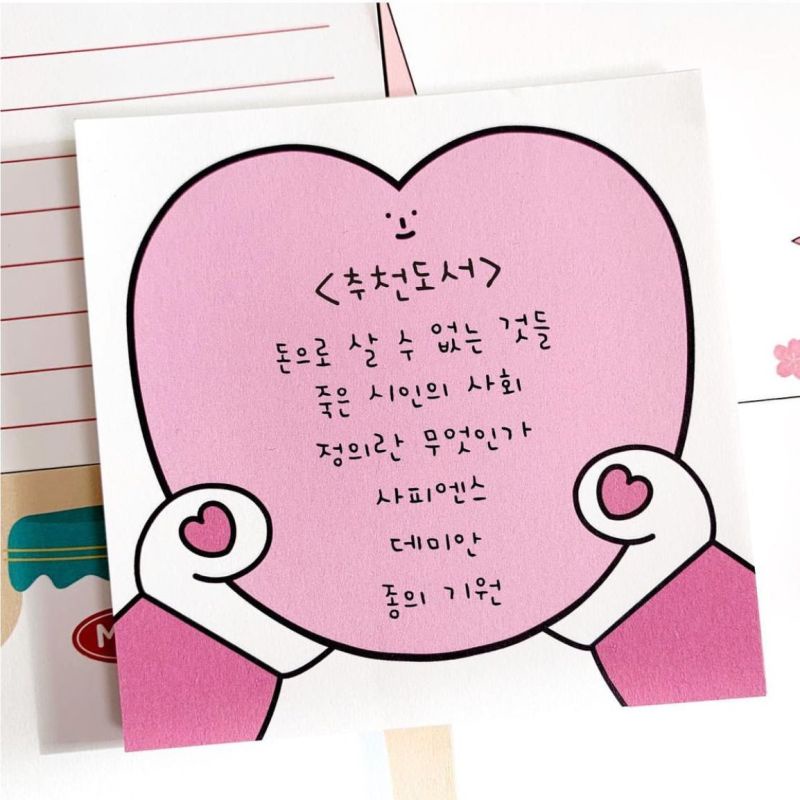 <추천도서>
돈으로 살 수 없는 것들
죽은 시인의 사회
정의란 무엇인가
사피엔스
데미안
종의 기원
M